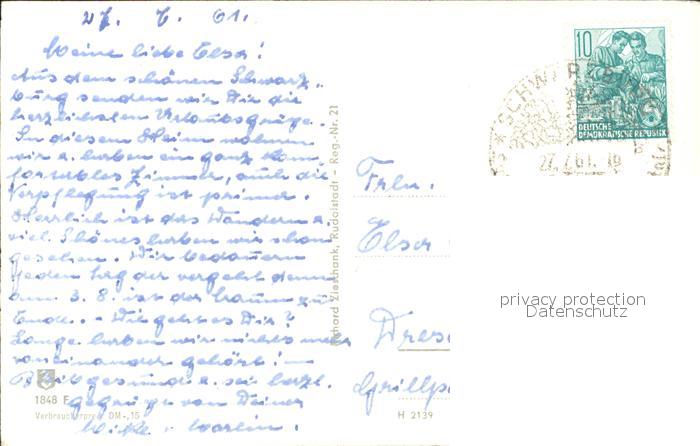 27. 7. 61.
Meine liebe Elsa!
Aus dem schönen Schwarz-
burg senden wir Dir die
herzlichsten Urlaubsgrüße.
In diesem Heim wohnen
wir u. haben ein ganz kom-
fortables Zimmer, auch die
Verpflegung ist prima.
Herrlich ist das Wandern u.
viel Schönes haben wir schon
gesehen. Wir bedauern
jeden Tag der vergeht denn
am 3. 8. ist der Traum zu
Ende. - Wie geht es Dir?
Lange haben wir nichts mehr
voneinander gehört!
Bleib gesund u. sei herzl.
gegrüßt von Deiner
1848 F
Verbraucherpreis DM -,15
Richard Zieschank, Rudolstadt - Reg.-Nr. 21
10
DEUTSCHE
DEMOKRATISCHE REPUBLIK
SCHWARZBURG
27.7.61.
Frln.
Elsa
Dres
H 2139
privacy protection
Datenschutz